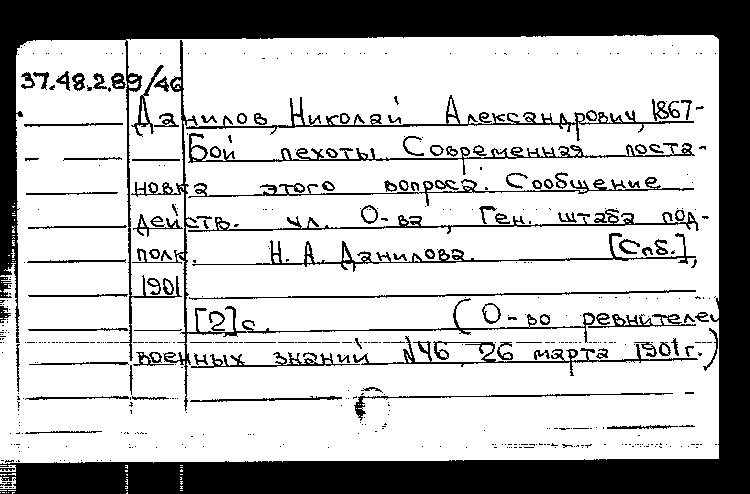 37.48.2.89/46
Данилов, Николай Александрович, 1867-
Бой пехоты. Современная поста-
новка этого вопроса. Сообщение
действ. чл. О-ва, Ген. штаба под-
полк. Н. А. Данилова. [Спб.],
1901
[2] с. (О-во ревнителей
военных знаний №46 26 марта 1901 г.)